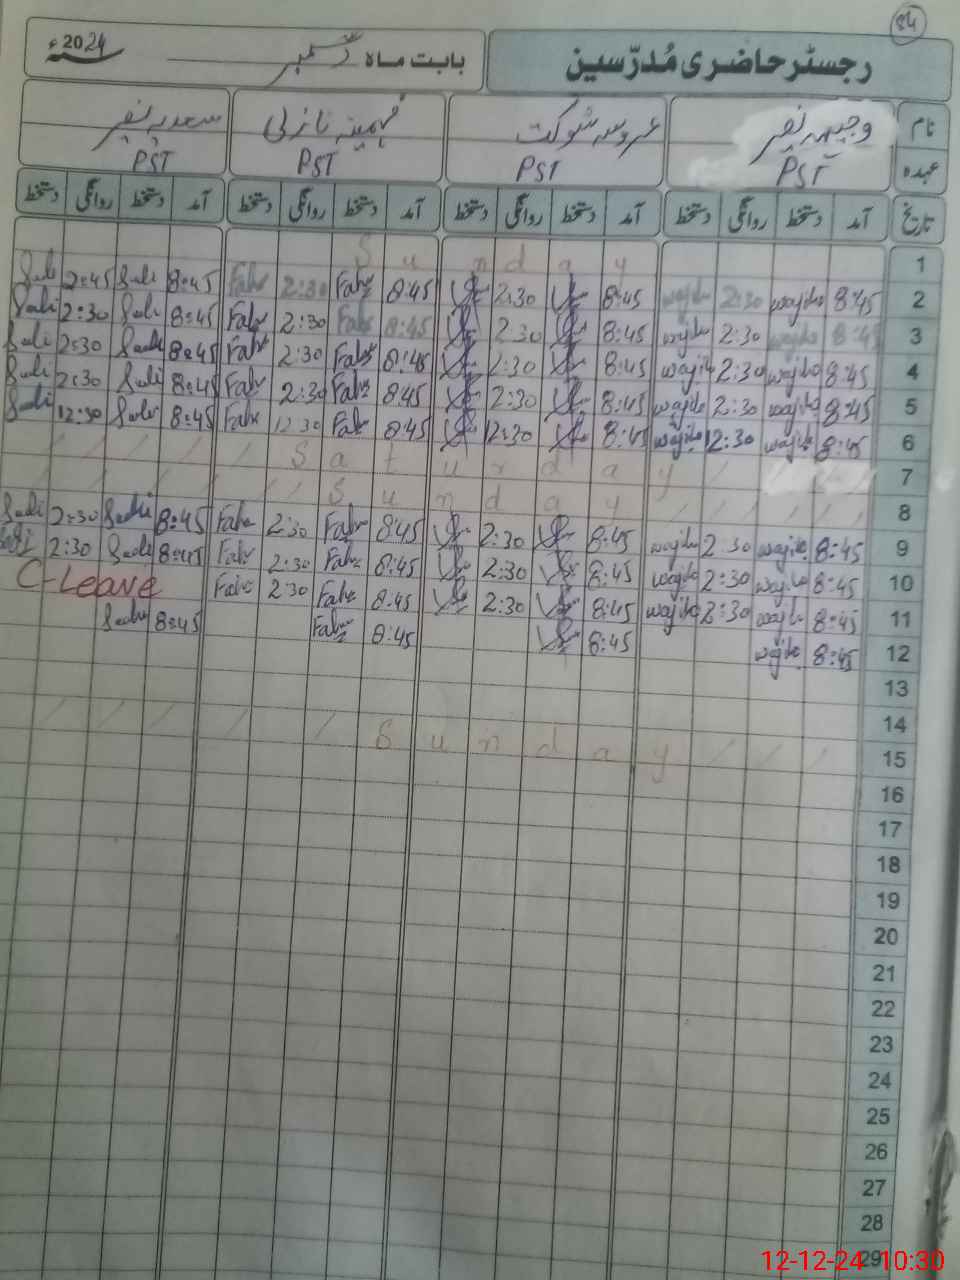 84
رجسٹر حاضری مُدرّسین
بابت ماہ دسمبر 2024ء
نام وجیہہ نصر عروسہ شوکت فہمینہ نازلی سعدیہ نصر
عہدہ PST PST PST PST
تاریخ آمد دستخط روانگی دستخط آمد دستخط روانگی دستخط آمد دستخط روانگی دستخط آمد دستخط روانگی دستخط
1 Sunday
2 8:45 wajiha 2:30 wajiha 8:45 2:30 8:45 Fahr 2:30 Fahr 8:45 Sadi 2:45 Sadi
3 8:45 wajiha 2:30 wajiha 8:45 2:30 8:45 Fahr 2:30 Fahr 8:45 Sadi 2:30 Sadi
4 8:45 wajiha 2:30 wajiha 8:45 2:30 8:45 Fahr 2:30 Fahr 8:45 Sadi 2:30 Sadi
5 8:45 wajiha 2:30 wajiha 8:45 2:30 8:45 Fahr 2:30 Fahr 8:45 Sadi 2:30 Sadi
6 8:45 wajiha 12:30 wajiha 8:45 12:30 8:45 Fahr 12:30 Fahr 8:45 Sadi 12:30 Sadi
7 Saturday
8 Sunday
9 8:45 wajiha 2:30 wajiha 8:45 2:30 8:45 Fahr 2:30 Fahr 8:45 Sadi 2:30 Sadi
10 8:45 wajiha 2:30 wajiha 8:45 2:30 8:45 Fahr 2:30 Fahr 8:45 Sadi 2:30 Sadi
11 8:45 wajiha 2:30 wajiha 8:45 2:30 8:45 Fahr 2:30 Fahr C-Leave
12 8:45 wajiha 8:45 8:45 Fahr 8:45 Sadi
13
14
15 Sunday
16
17
18
19
20
21
22
23
24
25
26
27
28
29
12-12-24 10:30